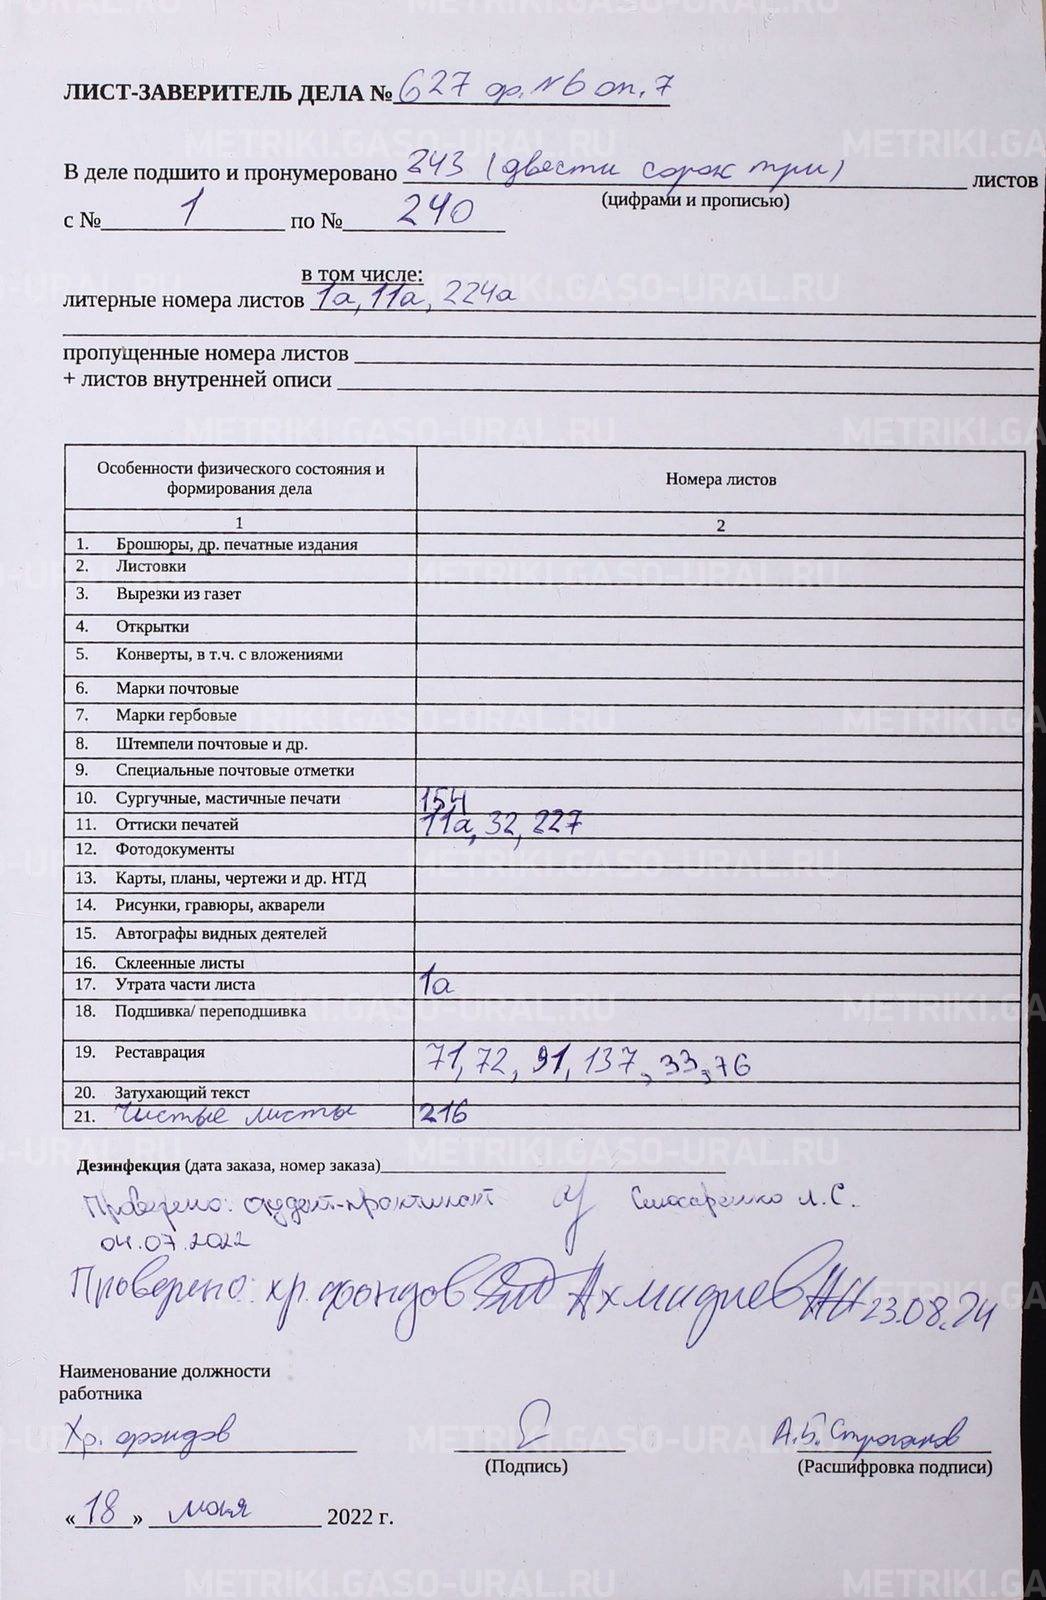 ЛИСТ-ЗАВЕРИТЕЛЬ ДЕЛА № 627 ф. №6 оп. 7
В деле подшито и пронумеровано 243 (двести сорок три) листов
(цифрами и прописью)
с № 1 по № 240
в том числе:
литерные номера листов 1а, 11а, 224а
пропущенные номера листов
+ листов внутренней описи
Особенности физического состояния и формирования дела Номера листов
1 2
1. Брошюры, др. печатные издания
2. Листовки
3. Вырезки из газет
4. Открытки
5. Конверты, в т.ч. с вложениями
6. Марки почтовые
7. Марки гербовые
8. Штемпели почтовые и др.
9. Специальные почтовые отметки
10. Сургучные, мастичные печати 154
11. Оттиски печатей 11а, 32, 227
12. Фотодокументы
13. Карты, планы, чертежи и др. НТД
14. Рисунки, гравюры, акварели
15. Автографы видных деятелей
16. Склеенные листы
17. Утрата части листа 1а
18. Подшивка/ переподшивка
19. Реставрация 71, 72, 91, 137, 33, 76
20. Затухающий текст
21. Чистые листы 216
Дезинфекция (дата заказа, номер заказа)
Проверено: студент-практикант Слюсаренко Л.С.
04.07.2022
Проверено: хр. фондов 23.08.24
Наименование должности
работника
Хр. фондов А.Б. Строганов
(Подпись) (Расшифровка подписи)
«18» мая 2022 г.
METRIKI.GASO-URAL.RU